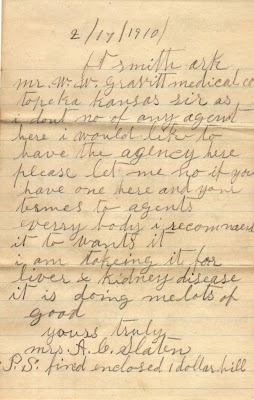 2/17/1910/
ft smith ark
mr. W. W. Gravitt medical co
topeka kansas sir as
i dont no of any agent
here i would like to
have the agency here
please let me no if you
have one here and your
termes to agents
everry body i recommend
it to wants it
i am takeing it for
liver & kidney disease
it is doing me lots of
good
yours truly
mrs. A. C. Slaten
P. S. find enclosed 1 dollar bill